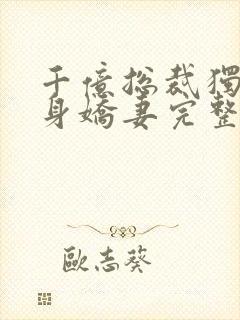 千億總裁獨
身嬌妻完整
歐志葵